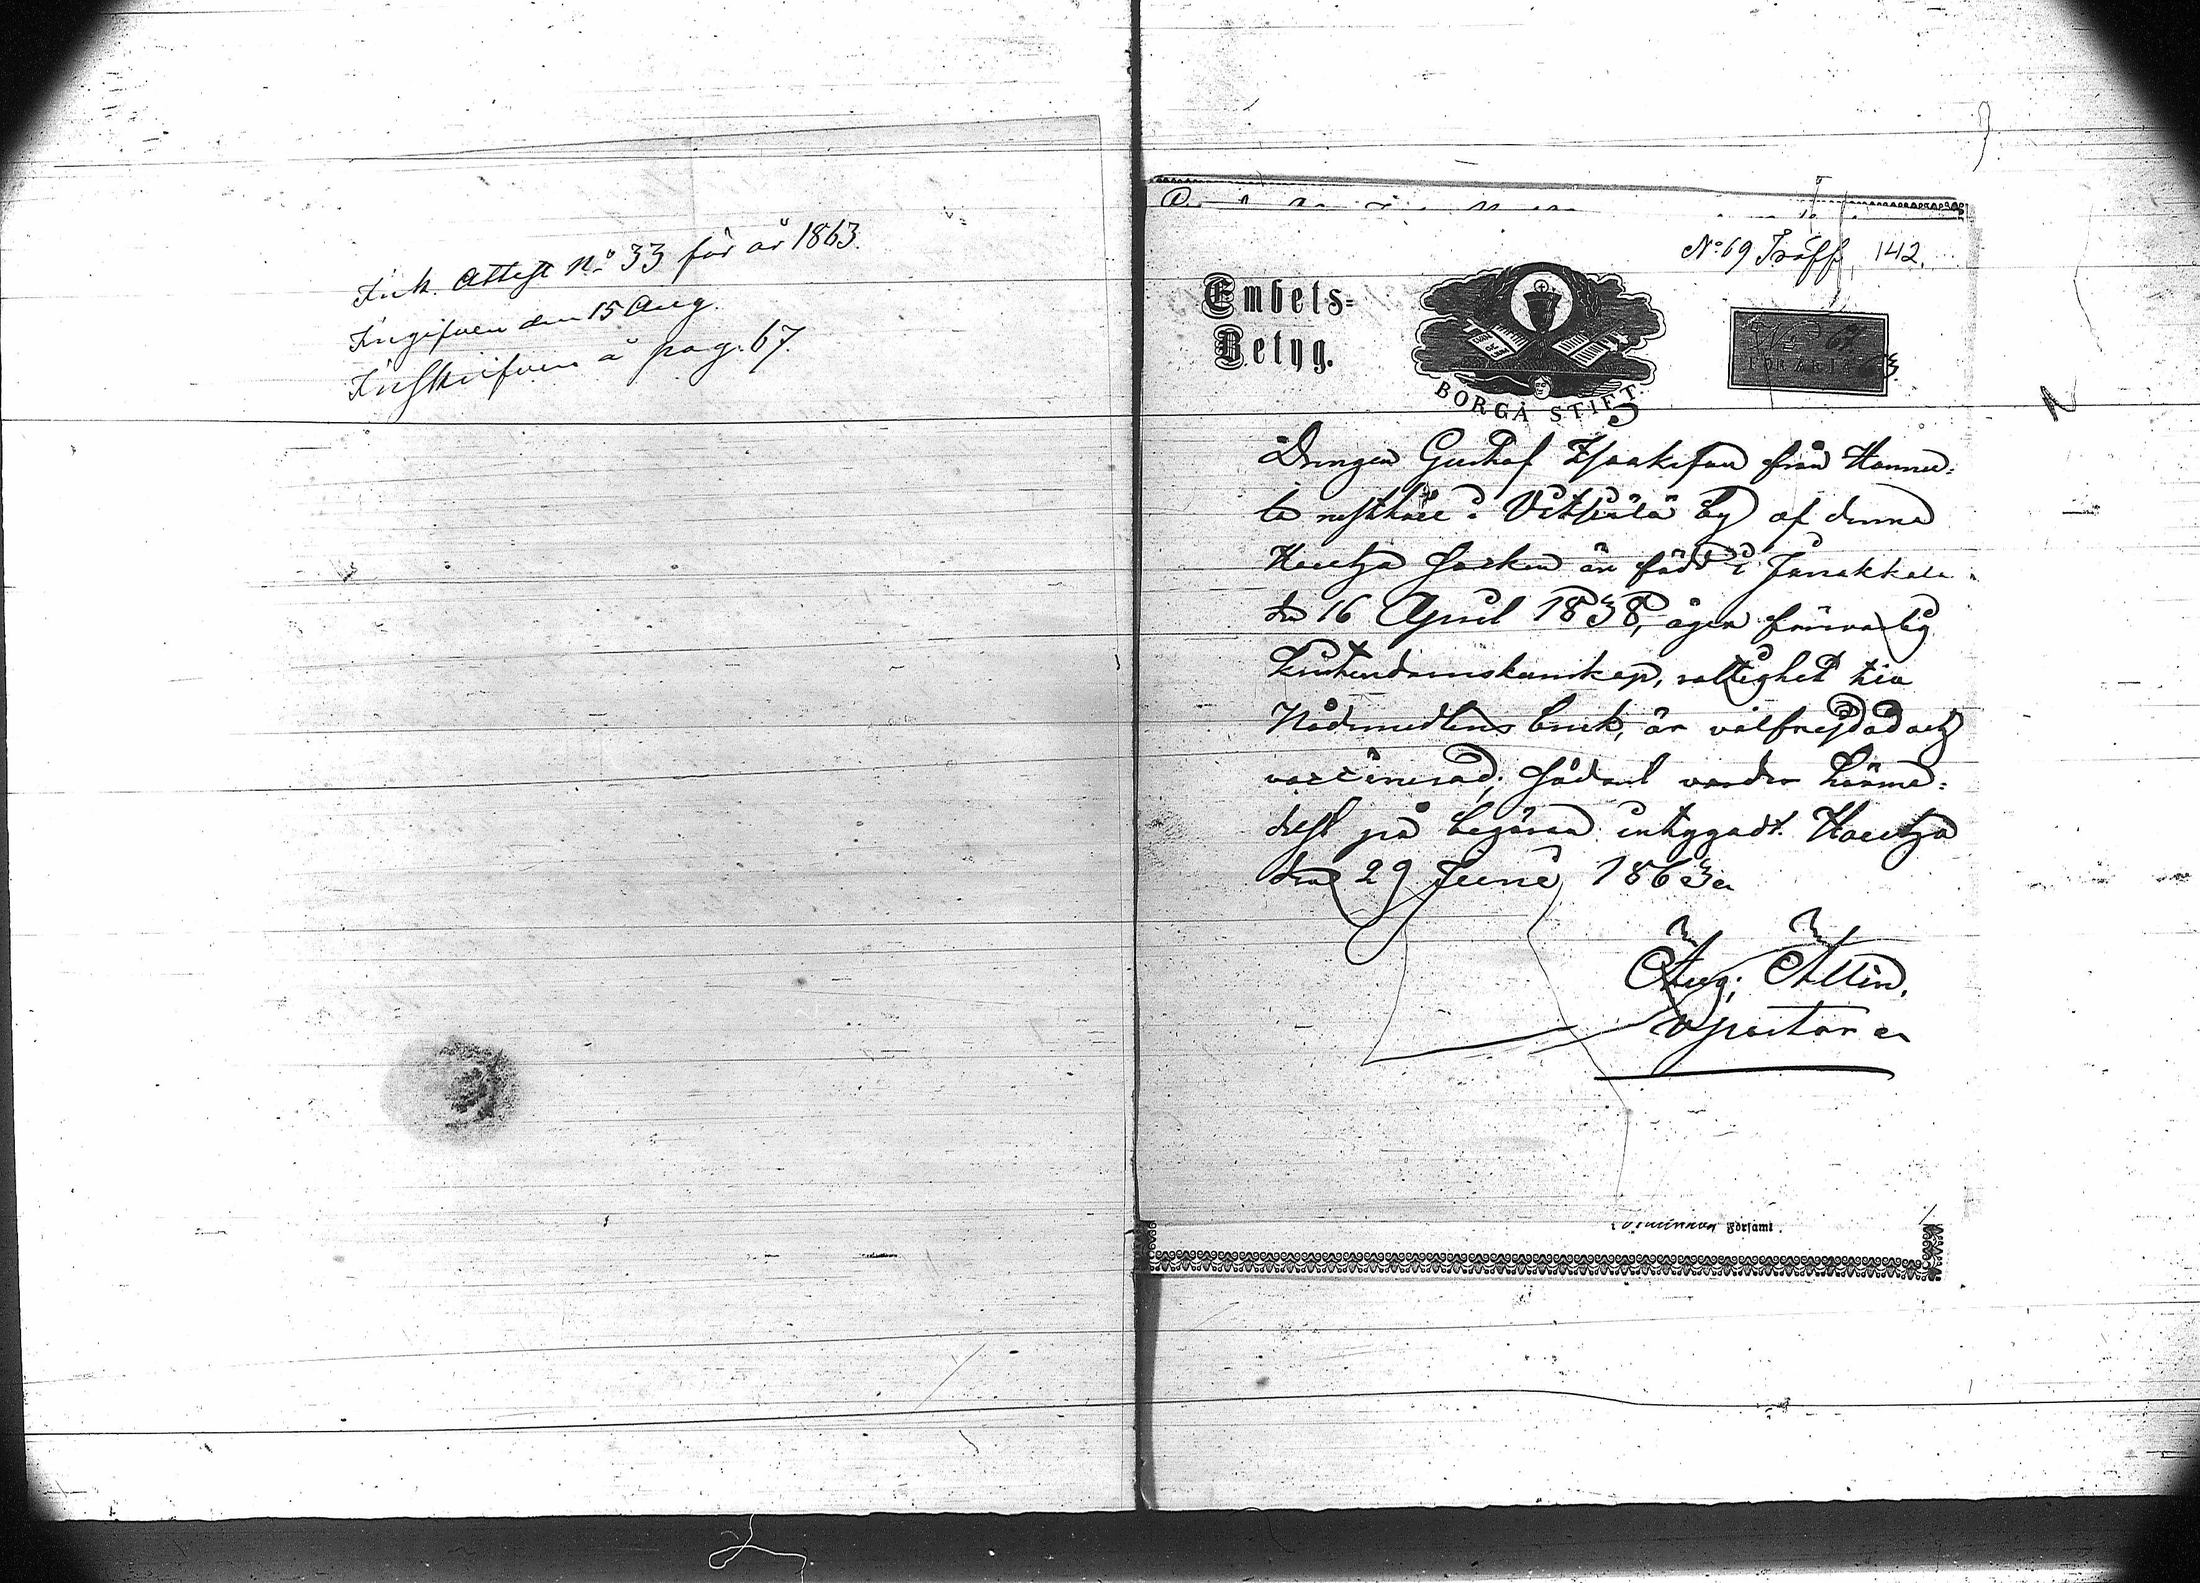 Ink. Attest No 33 för år 1863.
Ingifven den 15 Aug.
Inskrifven å pag. 67.
No 69 Träff, 142.
Embets=
Betyg.
BORGÅ STIFT
No 67
FÖR ÅR 1863.
Drengen Gustaf Isaaksson från Hannu=
la rusthåll i Vitsiälä by af denne
Hauho socken är född i Janakkala
den 16 April 1838, äger försvarlig
kristendomskunskap, rättighet till
Nådemedlens bruk, är välfrejdad och
vaccinerad; sådant varder härme=
delst på begäran intygadt. Hauho
den 29 Junii 1863
Aug. Allén.
v pastor
Församl.